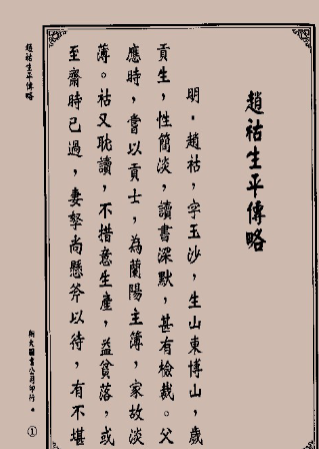 趙祜生平傳略
明。趙祜，字玉沙，生山東博山，歲
貢生，性簡淡，讀書深默，甚有檢裁。父
應時，嘗以貢士，為蘭陽主簿，家故淡
薄。祜又耽讀，不措意生產，益貧落，或
至齋時已過，妻孥尚懸斧以待，有不堪
趙祜生平傳略
翔大圖書公司印行。
①